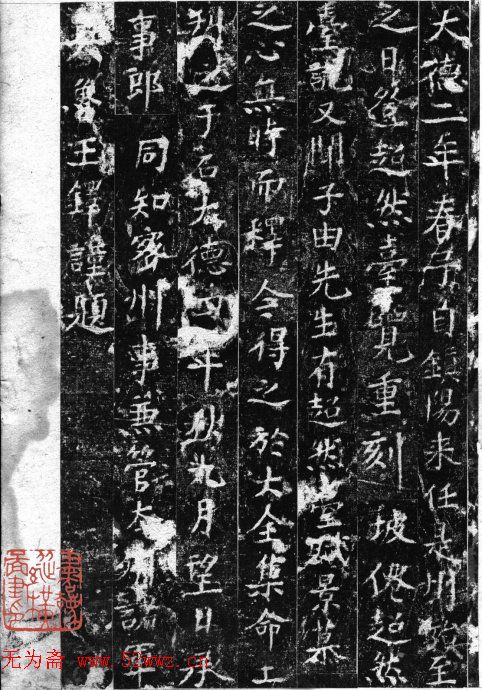 大德二年春予自鎮陽来任是州始至
之日登超然臺見重刻坡僊超然
臺記又聞子由先生有超然臺賦景慕
之心無時而釋今得之於大全集命工
刊之于石大德四年秋九月望日承
事郎同知密州事兼管本州諸軍
奥魯王鐸謹題
无为斋 www.52wwz.cn